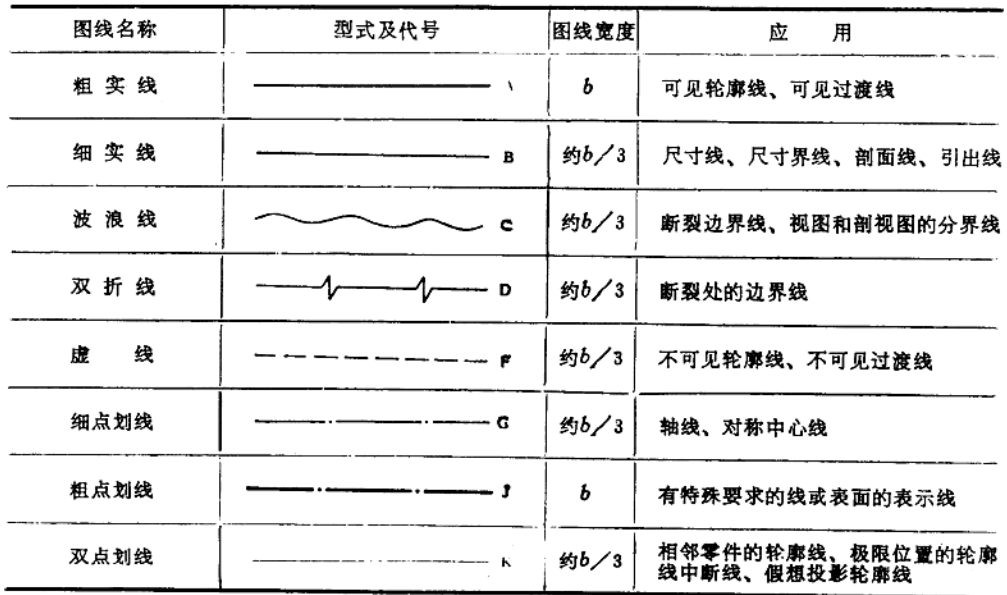 图线名称 型式及代号 图线宽度 应 用
粗 实 线 b 可见轮廓线、可见过渡线
细 实 线 B 约b/3 尺寸线、尺寸界线、剖面线、引出线
波 浪 线 C 约b/3 断裂边界线、视图和剖视图的分界线
双 折 线 D 约b/3 断裂处的边界线
虚 线 F 约b/3 不可见轮廓线、不可见过渡线
细点划线 G 约b/3 轴线、对称中心线
粗点划线 J b 有特殊要求的线或表面的表示线
双点划线 K 约b/3 相邻零件的轮廓线、极限位置的轮廓
线中断线、假想投影轮廓线